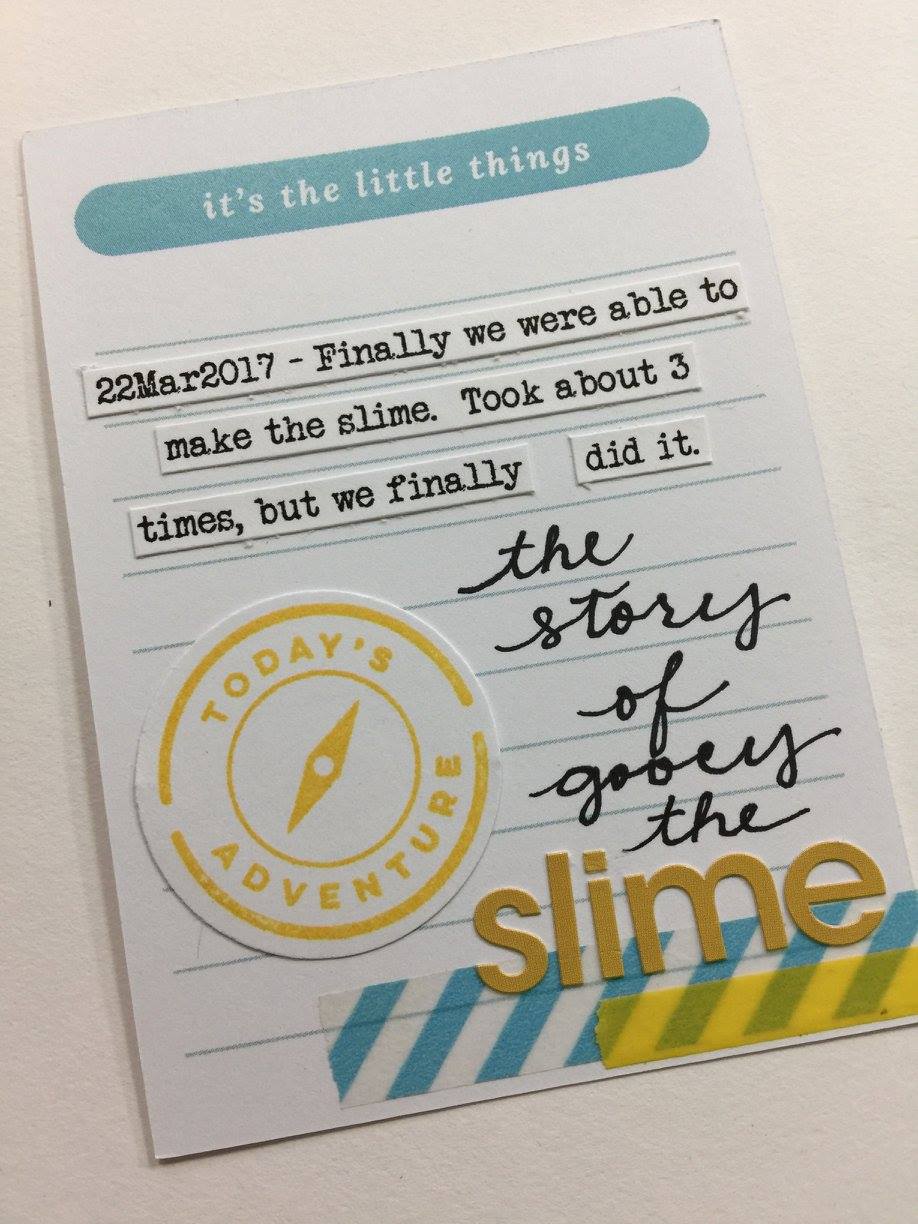 it's the little things
22Mar2017 - Finally we were able to
make the slime. Took about 3
times, but we finally did it.
the
story
of
gooey
the
slime
TODAY'S
ADVENTURE